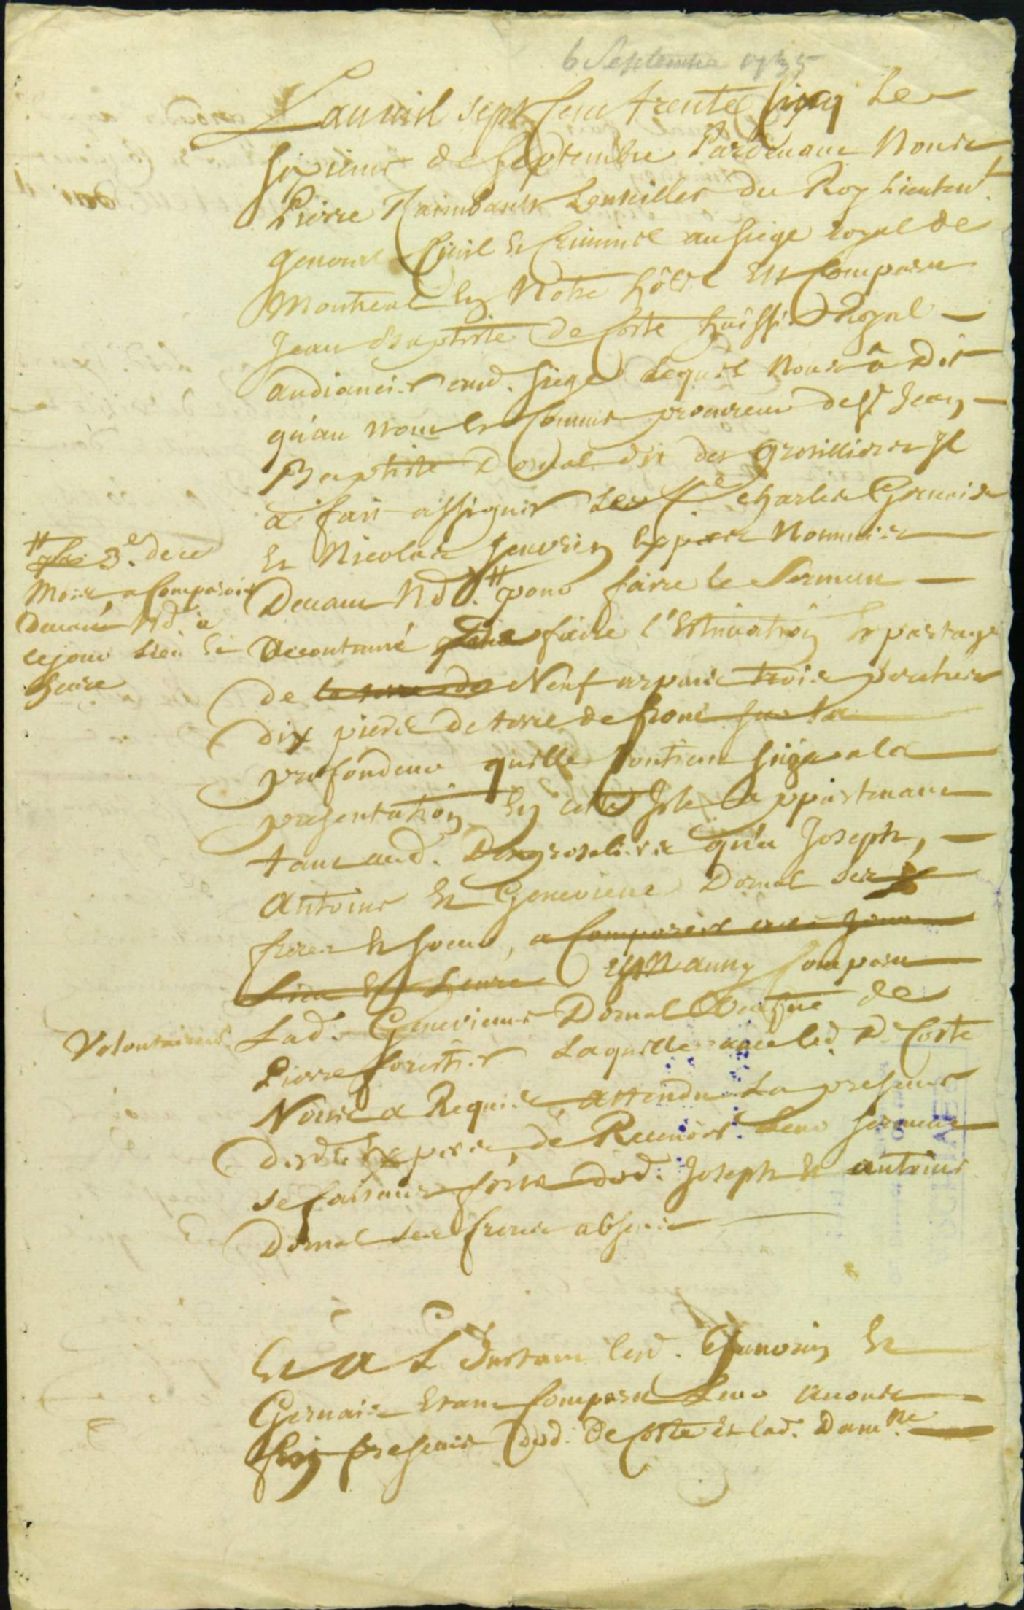 6 Septembre 1735
L'an mil sept Cent trente Cinq Le
sixieme de septembre Pardevant Nous
Pierre Raimbault Conseiller du Roy Lieutent
general Civil Et Criminel au siege royal de
Montreal En Notre hôtel Est Comparu
Jean Baptiste deCoste huissier Royal
audiancier aud. siege Lequel Nous a Dit
qu'au nom Et Comme procureur de Sr Jean
Baptiste Dornal dit des groseilliers Jl
a fait assigner Les Srs Charles Gervais
Et Nicolas Jeuvrin Expers Nommés
Devant Nd. # pour faire le Serment
Accoutumé faire l'Estimation Et partage
de la terre de Neuf arpans trois perches
dix pieds de terre de front sur la
profondeur quelle Contient size a la
presentation En cette Isle appartenant
tant aud. Desgroseliers qu'a Joseph,
Antoine Et Genevieve Dornal ses
freres Et soeur, a Comparoir a ce jour
Lieu Et heure Est aussy Comparu
Lad. Genevieve Dornal Veufve de
Pierre forestier Laquelle avec led. DeCoste
Nous a Requis, attendu La presence
desd. Expers, de Recevoir Leur serment
se faisant forte desd. Joseph Et antoine
Dornal ses freres absens
# 3e. de ce
Mois a Comparoir
Devant Nd. a
ce jour Lieu Et
heure
Volontairemt.
Et a L'Instant lesd. Jeuvrin Et
Gervais Etant Comparu Leur avons
En presence dud. DeCoste et lad. Dam.lle